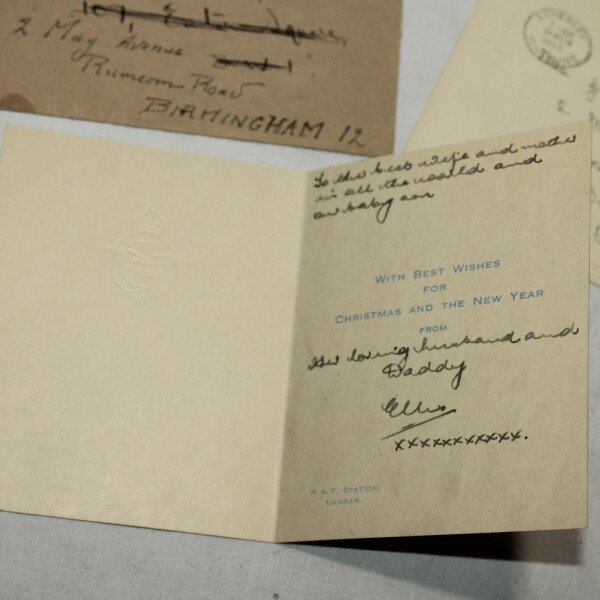 107, Eaton Square,
2 May Avenue
Runcorn Road
BIRMINGHAM 12
2.
To the best wife and mother
in all the world and
our baby son
WITH BEST WISHES
FOR
CHRISTMAS AND THE NEW YEAR
FROM
Her loving husband and
Daddy
Ellis
xxxxxxxxxxx.
R.A.F. STATION,
LANGAR.